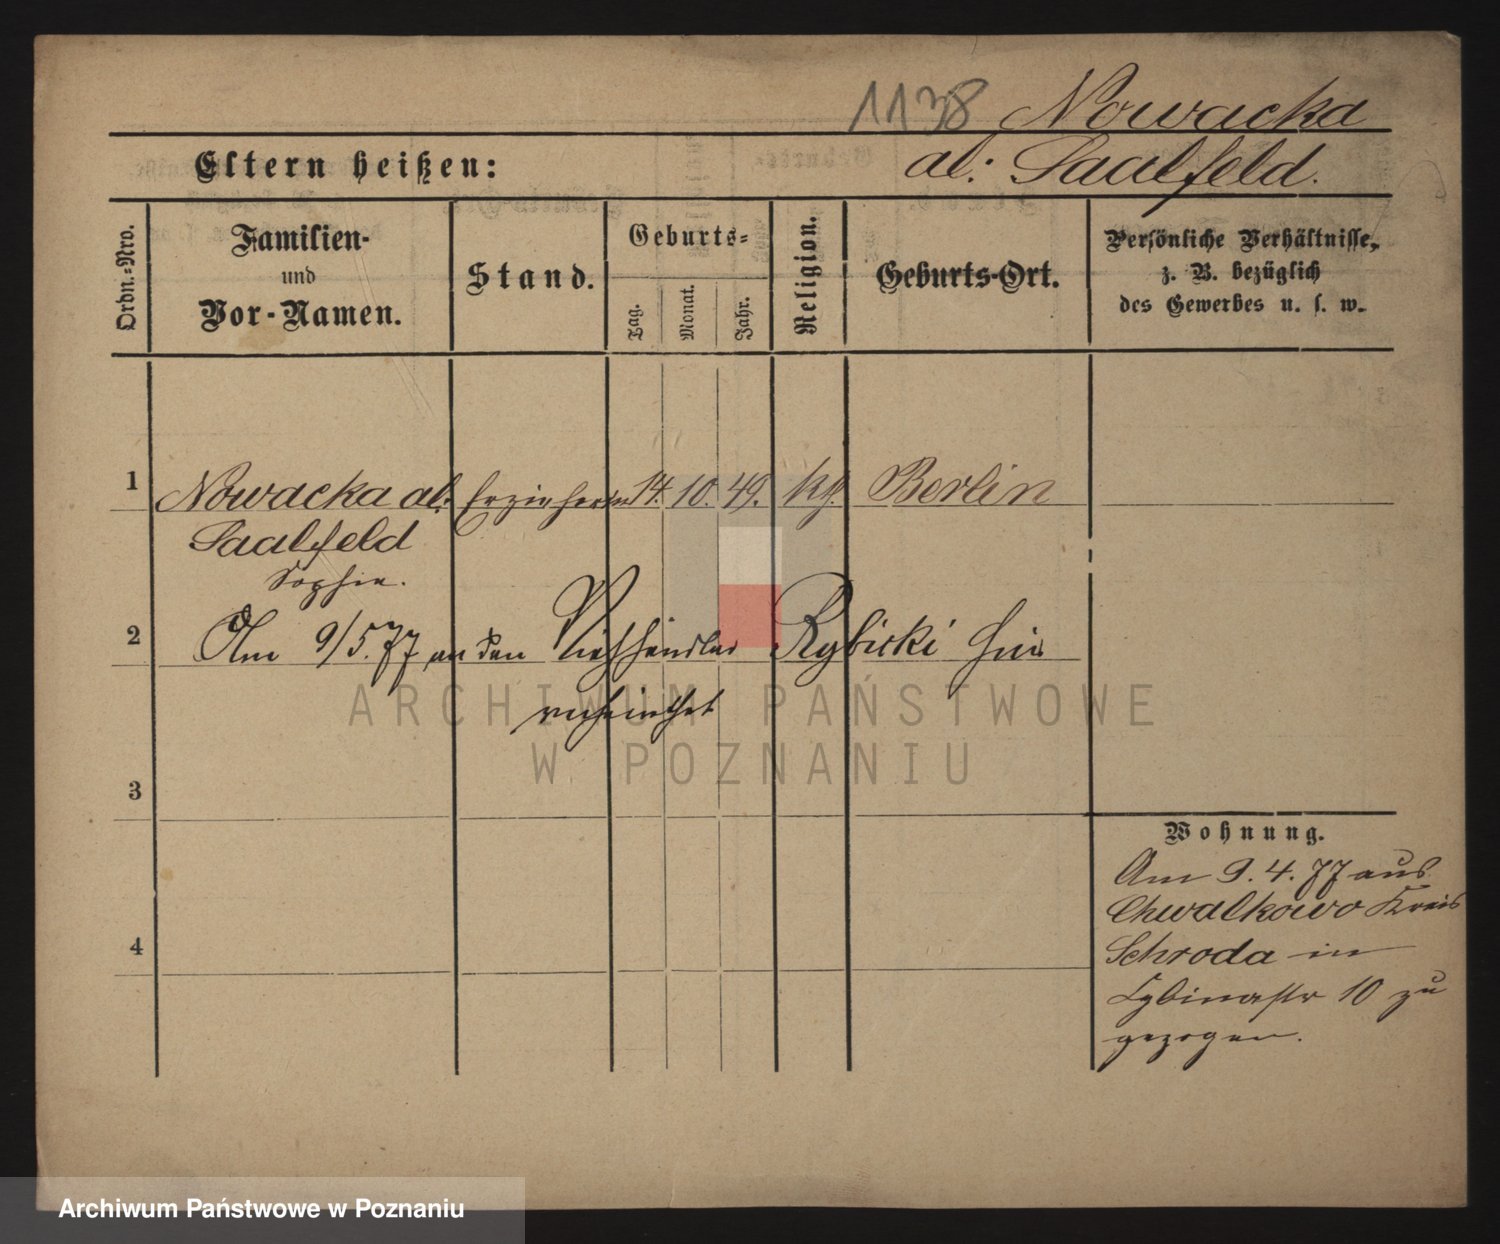 1138 Nowacka
Eltern heißen: al: Saalfeld.
Ordn.-Nro.
Familien-
und
Vor-Namen.
Stand.
Geburts-
Tag.
Monat.
Jahr.
Religion.
Geburts-Ort.
Persönliche Verhältnisse,
z. B. bezüglich
des Gewerbes u. s. w.
1 Nowacka al. Erzieherin 14. 10. 49. Berlin
Saalfeld
Sophie.
2 Am 9/5.77 an den Viehhändler Rybicki hier
verheirathet
3
Wohnung.
Am 9.4.77 aus
Chwalkowo Kreis
Schroda in
Cybinastr 10 zu
gezogen.
4
ARCHIWUM PAŃSTWOWE
W POZNANIU
Archiwum Państwowe w Poznaniu